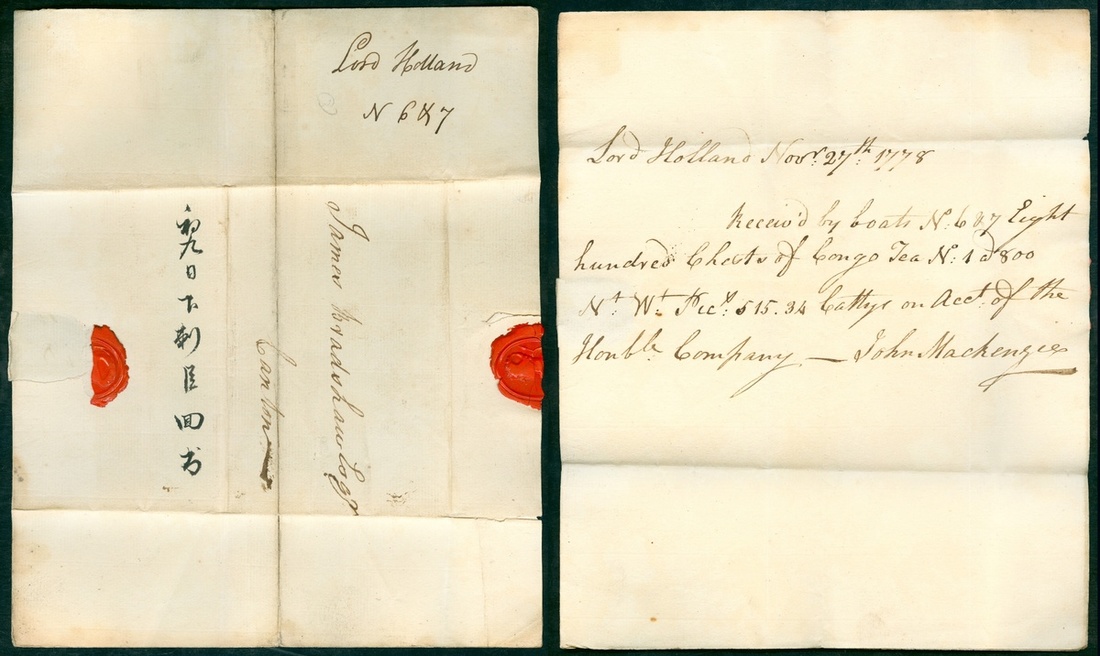 Lord Holland
N 6 & 7
James Bradshaw Esqr
Canton
初九日下剌臣回書
Lord Holland Novr. 27th. 1778
Receiv'd by boats N: 6 & 7 Eight
hundred Chests of Congo Tea N: 1 @ 800
Nt. Wt. Pecs. 515.34 Cattys on Acct. of the
Honble. Company — John Mackenzie